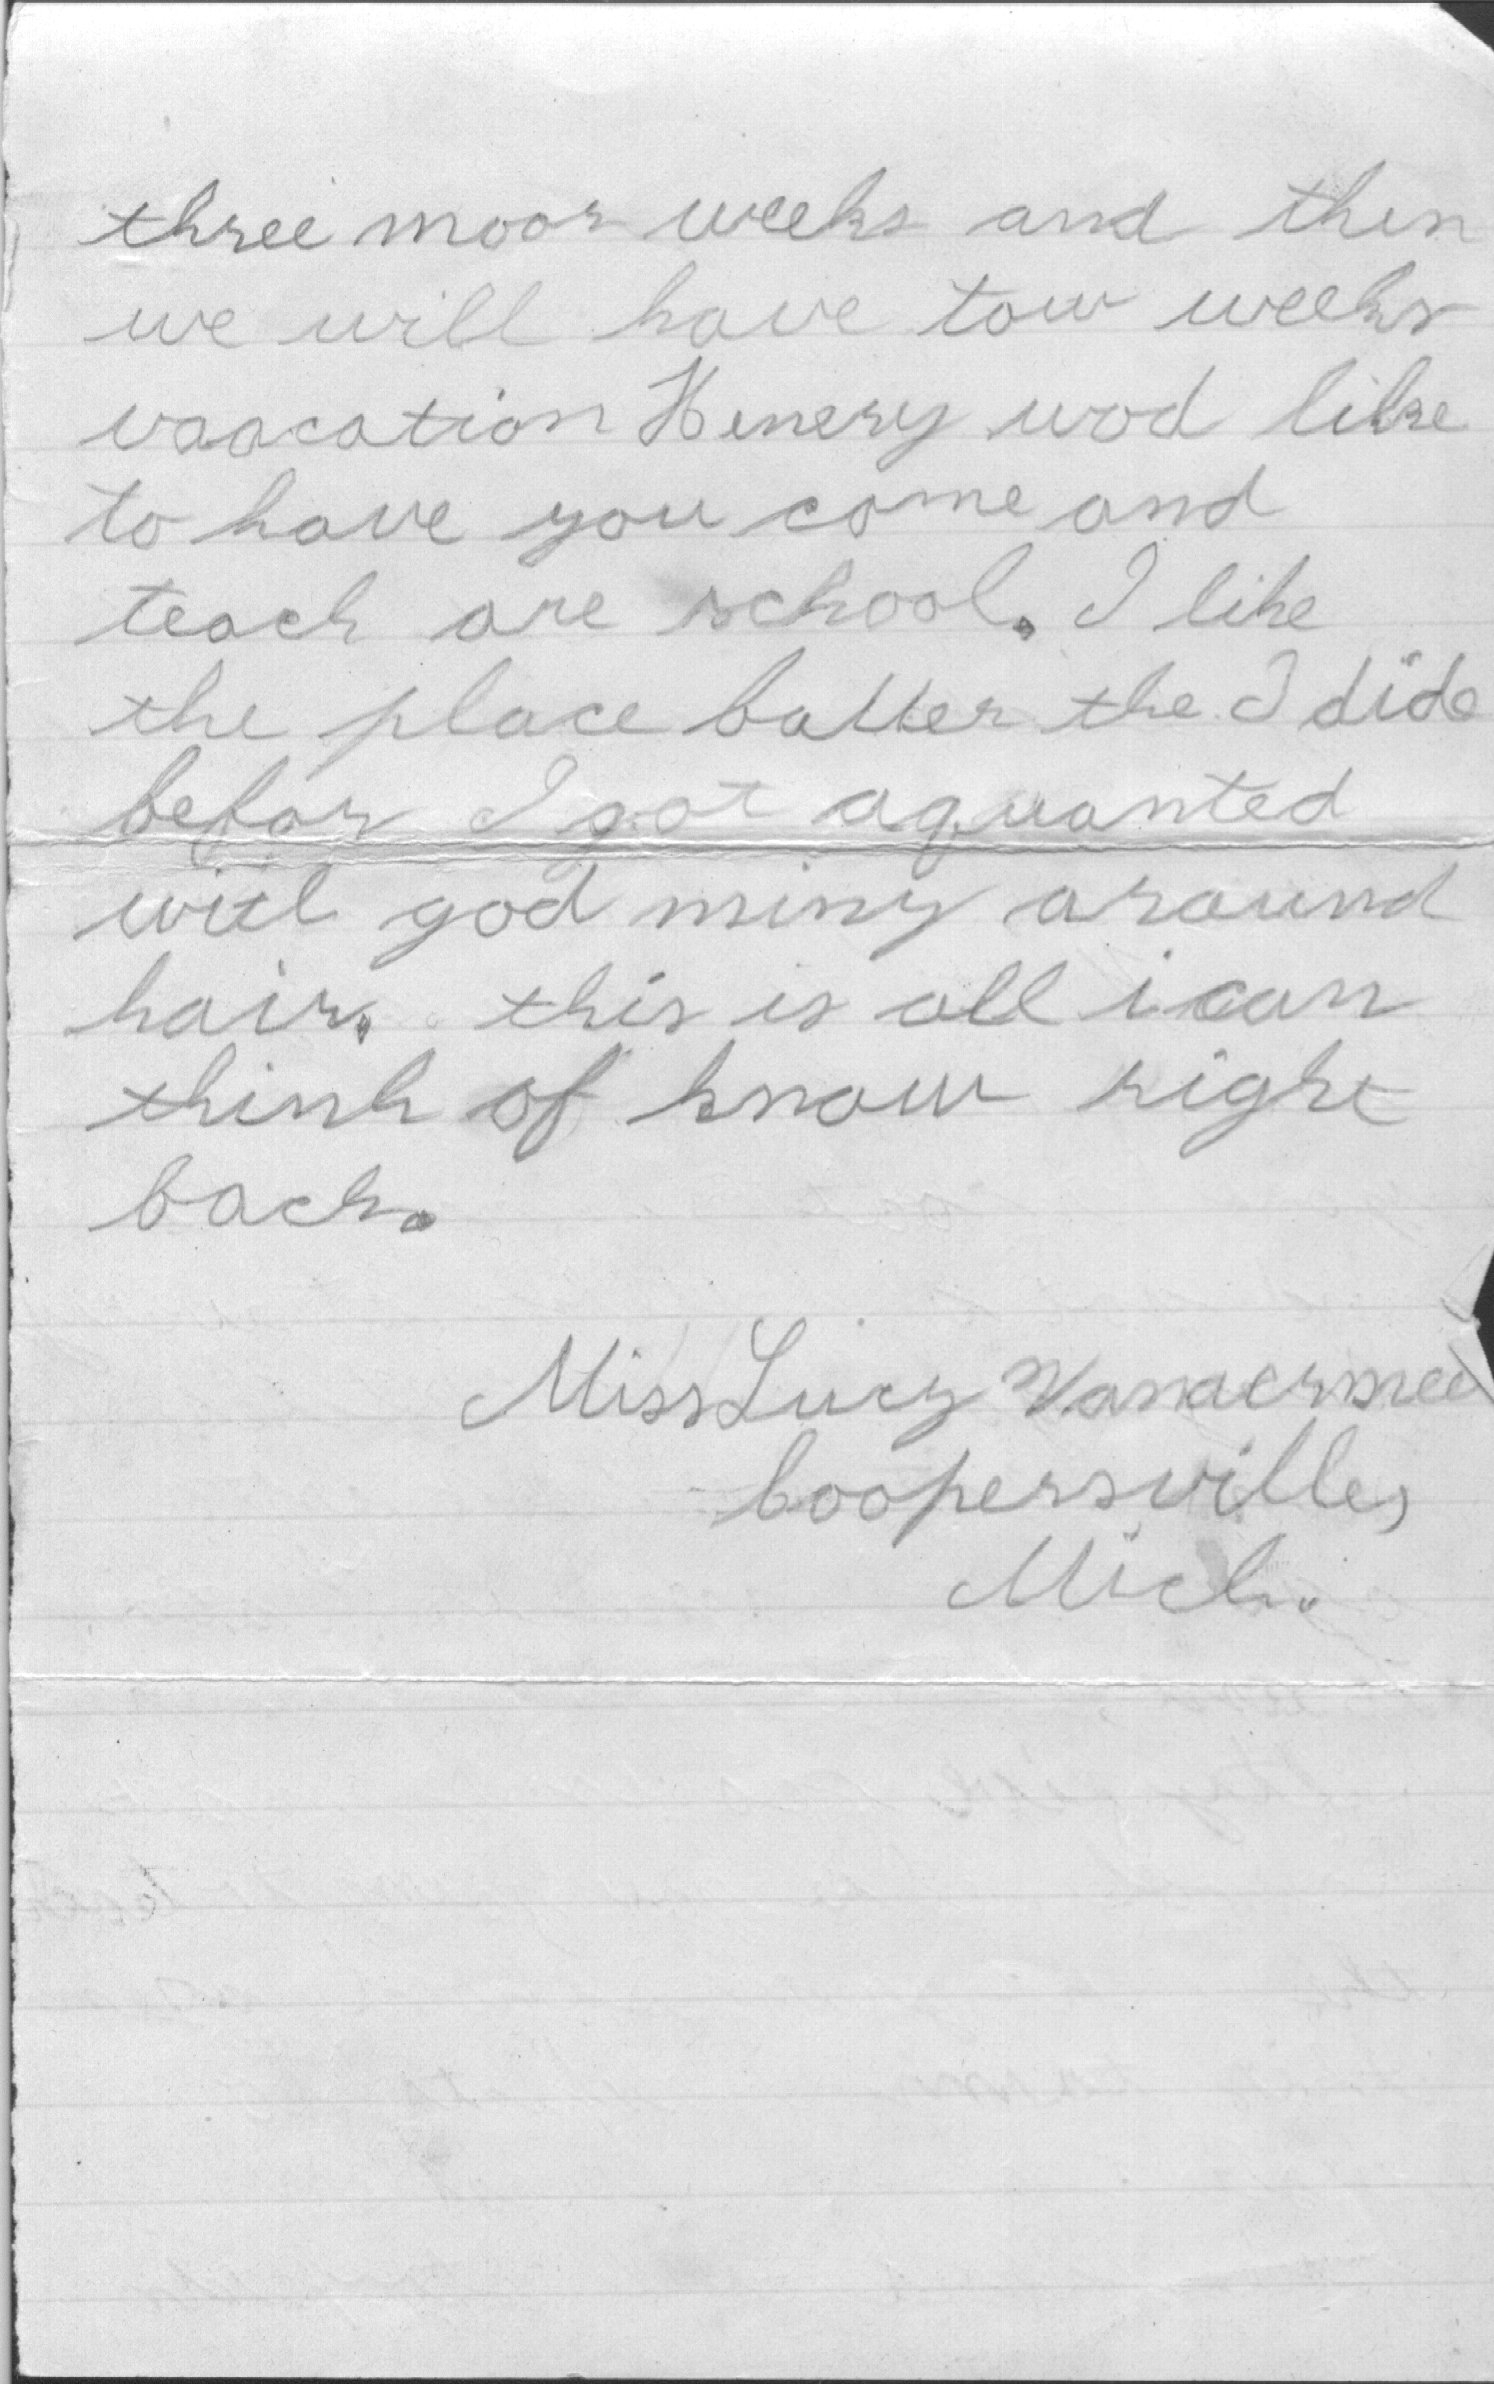 three moor weeks and then
we will have tow weeks
vaacation Henery wod like
to have you come and
teach are school. I like
the place batter the I dide
befor I got aquanted
witl god miny around
hair. this is all i can
think of know right
back.
Miss Lucy
Coopersville,
Mich.